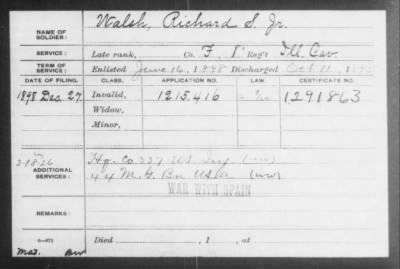 NAME OF SOLDIER: Walsh, Richard S. Jr.
SERVICE: Late rank, Co. F, 1" Reg't Ill. Cav.
TERM OF SERVICE: Enlisted June 16, 1898 Discharged Oct 11, 1898
DATE OF FILING. CLASS. APPLICATION NO. LAW. CERTIFICATE NO.
1898 Dec. 27. Invalid, 1215,416 1291863
Widow,
Minor,
2-18-26 Hq. Co 337 US Inf (WW)
ADDITIONAL SERVICES: 44 M. G. Bn USA (WW)
WAR WITH SPAIN
REMARKS:
Died , 1 , at